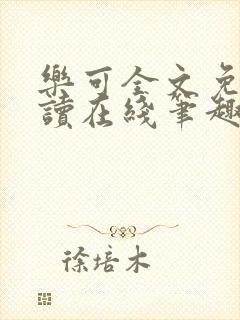 樂可全文免
讀在綫筆趣
徐培木